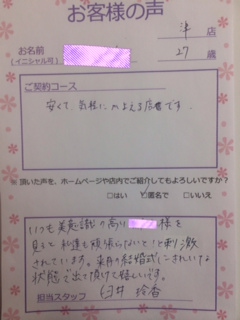 お客様の声
津 店
お名前
(イニシャル可)
27 歳
ご契約コース
安くて、気軽に かよえる店舗です。
※ 頂いた声を、ホームページや店内でご紹介してもよろしいですか?
□はい ☑匿名で □いいえ
いつも美意識の高い 様を
見て 私達も頑張らないと!と刺激
されています。来月の結婚式にきれいな
状態で出て頂けて嬉しいです。
担当スタッフ 臼井 玲香